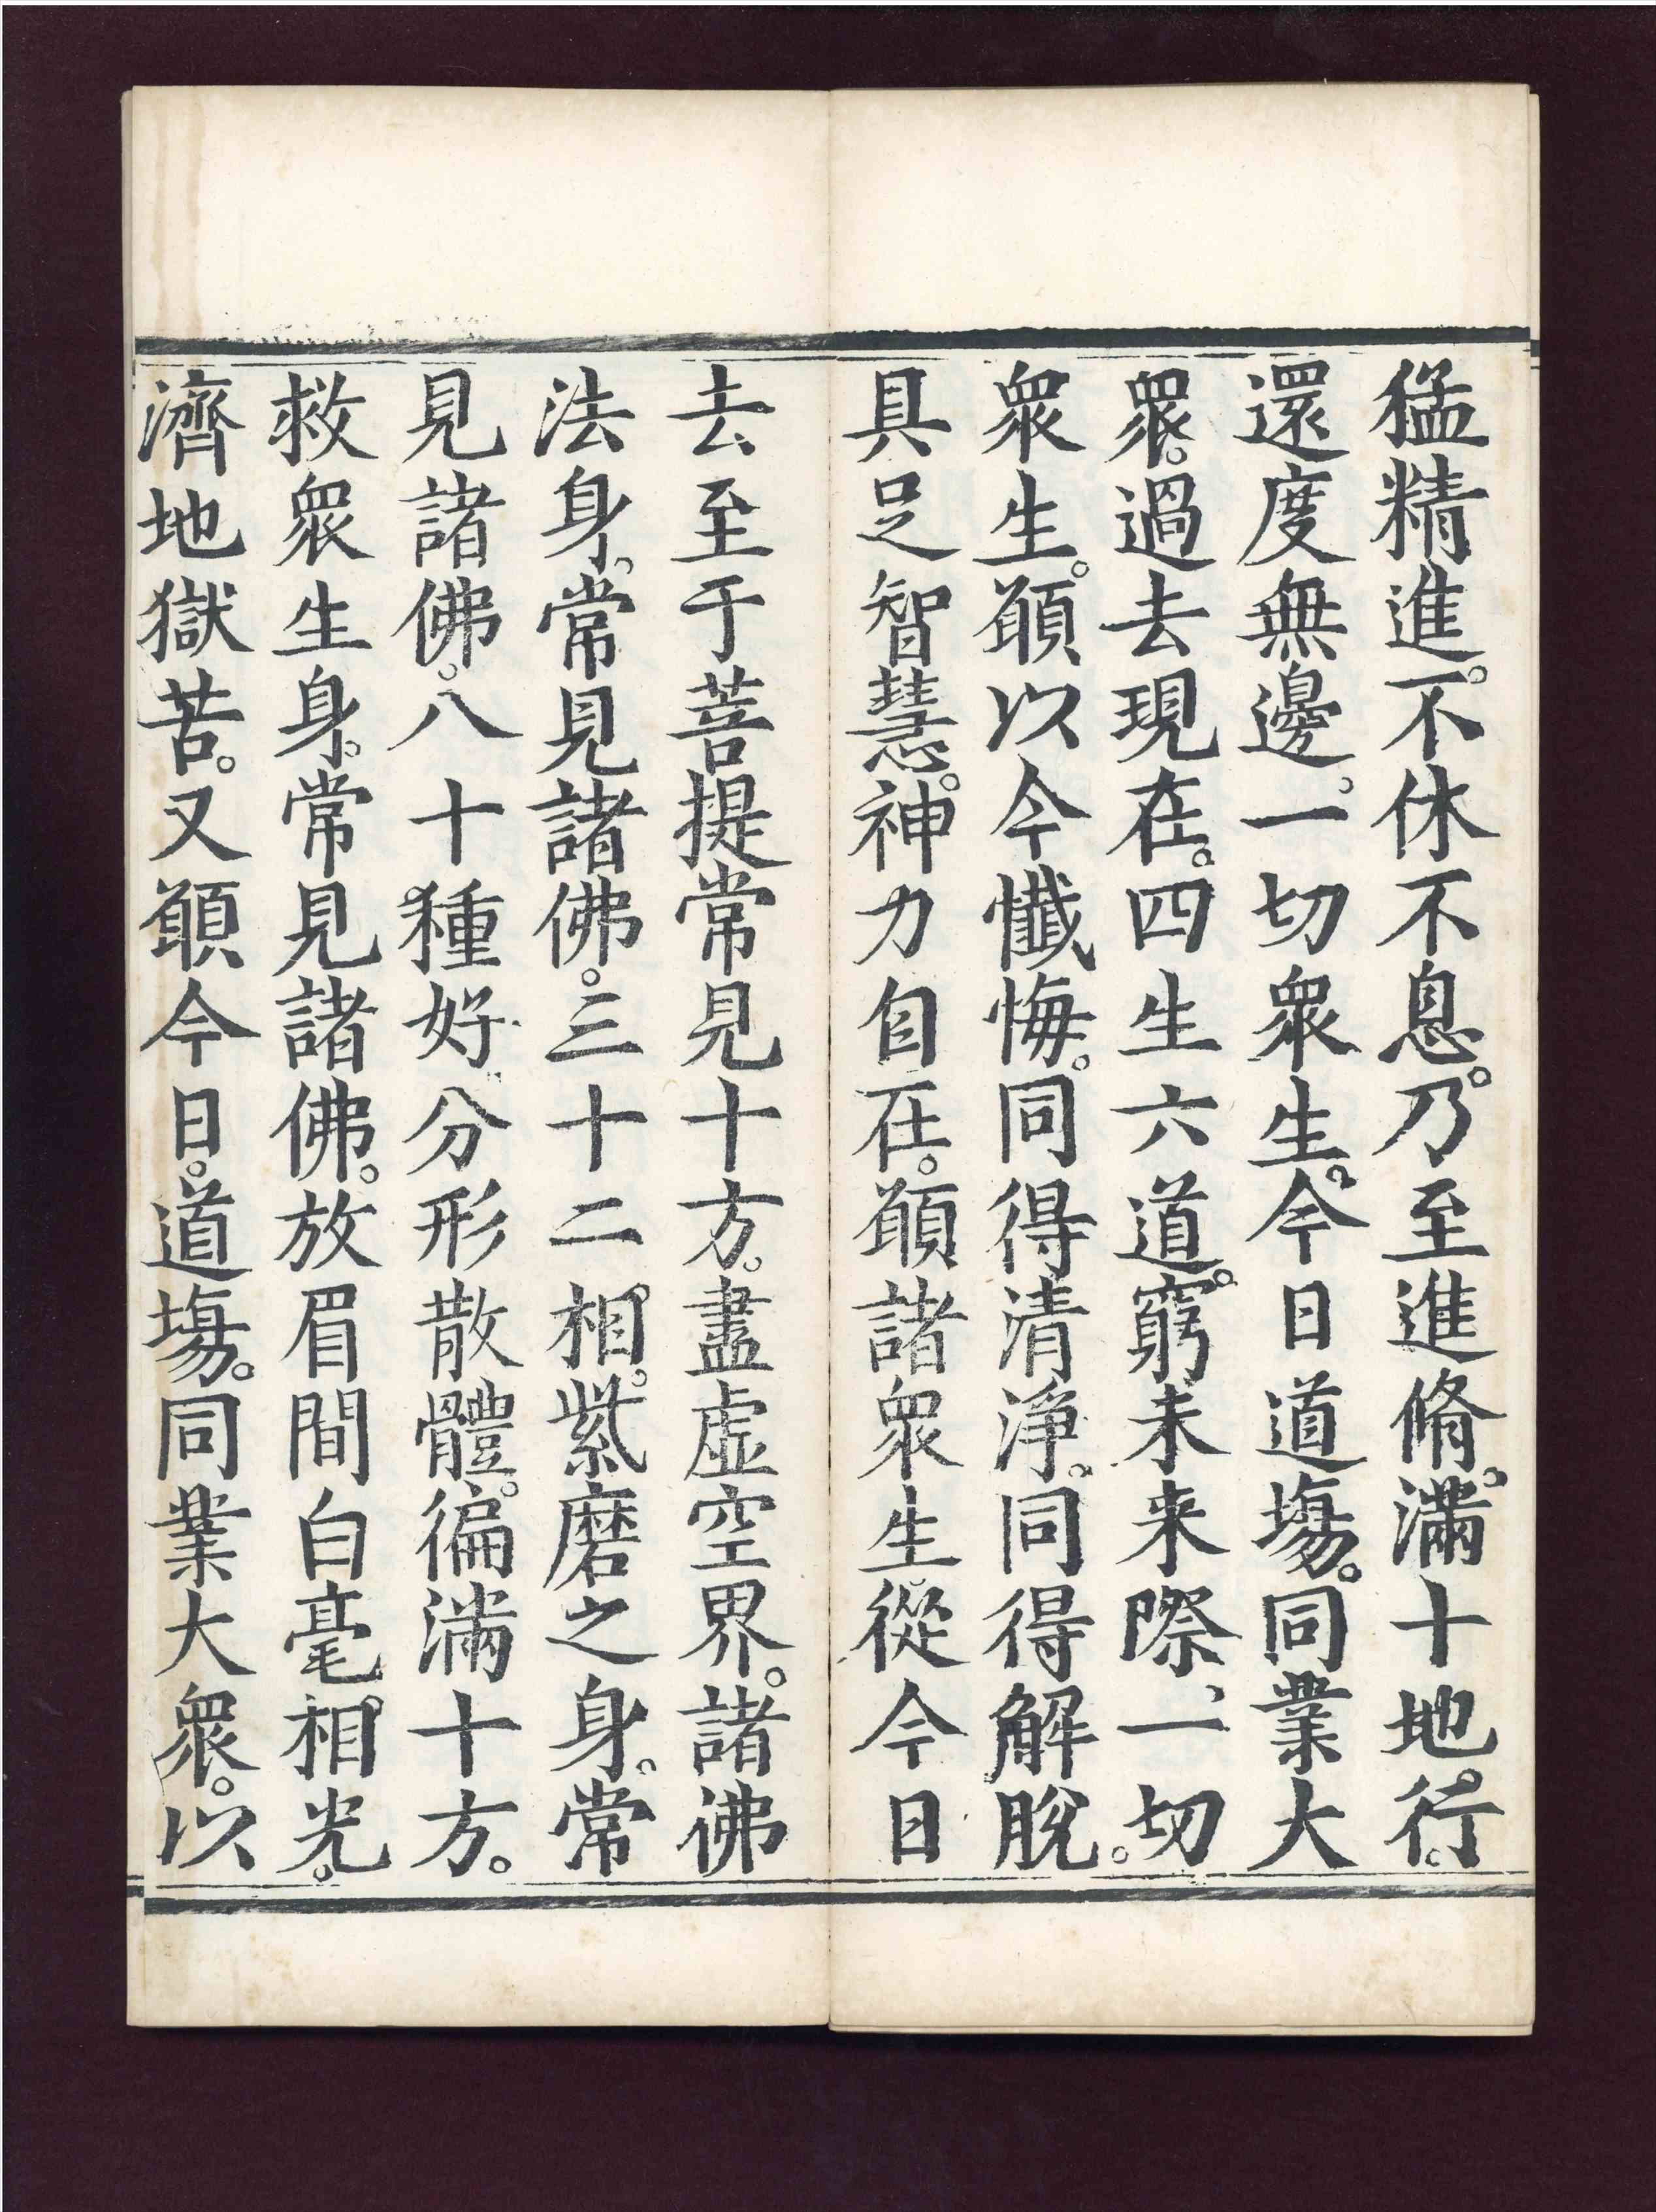 猛精進。不休不息。乃至進脩。滿十地。行。
還度無邊。一切衆生。今日道場。同業大
衆。過去現在。四生六道。窮未来際、一切
衆生。願以今懺悔。同得清淨。同得解脫。
具足智慧。神力自在。願諸衆生。從今日
去至于菩提常見十方。盡虛空界。諸佛
法身。常見諸佛。三十二相。紫磨之身。常
見諸佛。八十種好。分形散體。徧滿十方。
救衆生身。常見諸佛。放眉間白毫相光。
濟地獄苦。又願今日。道場。同業大衆。以